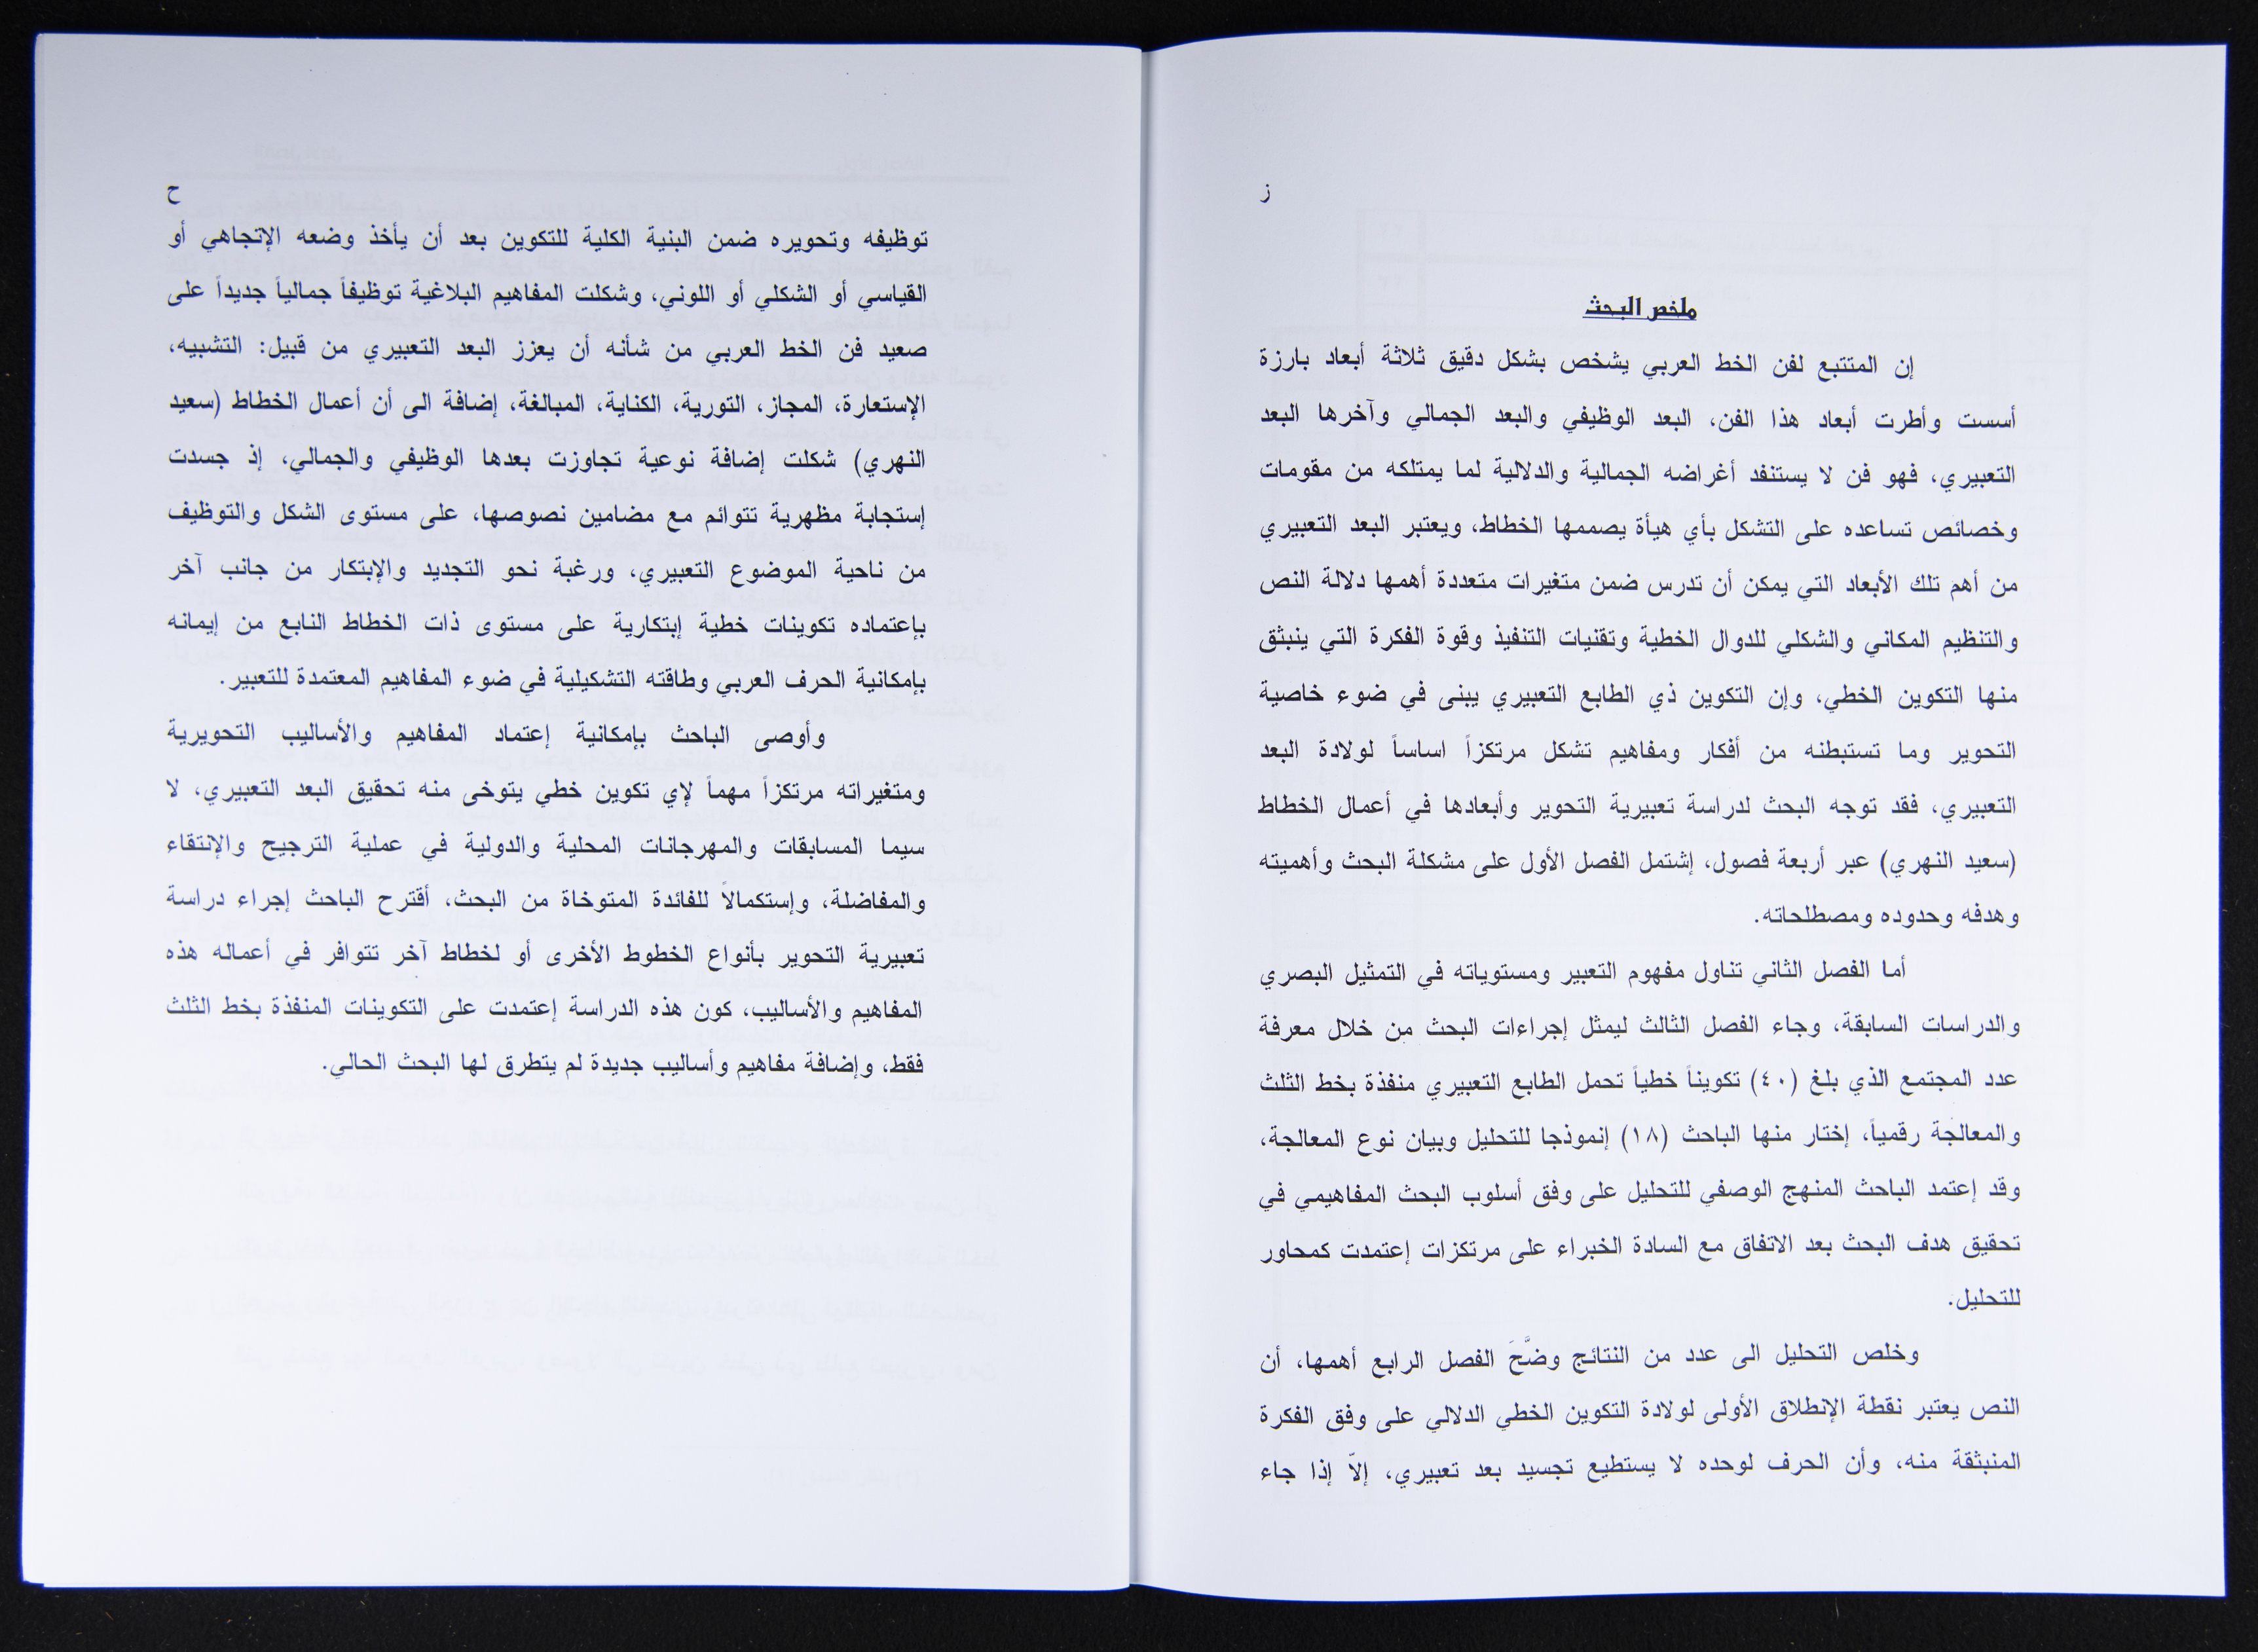 ز
ملخص البحث
إن المتتبع لفن الخط العربي يشخص بشكل دقيق ثلاثة أبعاد بارزة
أسست وأطرت أبعاد هذا الفن، البعد الوظيفي والبعد الجمالي وآخرها البعد
التعبيري، فهو فن لا يستنفد أغراضه الجمالية والدلالية لما يمتلكه من مقومات
وخصائص تساعده على التشكل بأي هيأة يصممها الخطاط، ويعتبر البعد التعبيري
من أهم تلك الأبعاد التي يمكن أن تدرس ضمن متغيرات متعددة أهمها دلالة النص
والتنظيم المكاني والشكلي للدوال الخطية وتقنيات التنفيذ وقوة الفكرة التي ينبثق
منها التكوين الخطي، وإن التكوين ذي الطابع التعبيري يبنى في ضوء خاصية
التحوير وما تستبطنه من أفكار ومفاهيم تشكل مرتكزاً اساساً لولادة البعد
التعبيري، فقد توجه البحث لدراسة تعبيرية التحوير وأبعادها في أعمال الخطاط
(سعيد النهري) عبر أربعة فصول، إشتمل الفصل الأول على مشكلة البحث وأهميته
وهدفه وحدوده ومصطلحاته.
أما الفصل الثاني تناول مفهوم التعبير ومستوياته في التمثيل البصري
والدراسات السابقة، وجاء الفصل الثالث ليمثل إجراءات البحث من خلال معرفة
عدد المجتمع الذي بلغ (٤٠) تكويناً خطياً تحمل الطابع التعبيري منفذة بخط الثلث
والمعالجة رقمياً، إختار منها الباحث (١٨) إنموذجا للتحليل وبيان نوع المعالجة،
وقد إعتمد الباحث المنهج الوصفي للتحليل على وفق أسلوب البحث المفاهيمي في
تحقيق هدف البحث بعد الاتفاق مع السادة الخبراء على مرتكزات إعتمدت كمحاور
للتحليل.
وخلص التحليل الى عدد من النتائج وضَّحَ الفصل الرابع أهمها، أن
النص يعتبر نقطة الإنطلاق الأولى لولادة التكوين الخطي الدلالي على وفق الفكرة
المنبثقة منه، وأن الحرف لوحده لا يستطيع تجسيد بعد تعبيري، إلاّ إذا جاء
ح
توظيفه وتحويره ضمن البنية الكلية للتكوين بعد أن يأخذ وضعه الإتجاهي أو
القياسي أو الشكلي أو اللوني، وشكلت المفاهيم البلاغية توظيفاً جمالياً جديداً على
صعيد فن الخط العربي من شأنه أن يعزز البعد التعبيري من قبيل: التشبيه،
الإستعارة، المجاز، التورية، الكناية، المبالغة، إضافة الى أن أعمال الخطاط (سعيد
النهري) شكلت إضافة نوعية تجاوزت بعدها الوظيفي والجمالي، إذ جسدت
إستجابة مظهرية تتوائم مع مضامين نصوصها، على مستوى الشكل والتوظيف
من ناحية الموضوع التعبيري، ورغبة نحو التجديد والإبتكار من جانب آخر
بإعتماده تكوينات خطية إبتكارية على مستوى ذات الخطاط النابع من إيمانه
بإمكانية الحرف العربي وطاقته التشكيلية في ضوء المفاهيم المعتمدة للتعبير.
وأوصى الباحث بإمكانية إعتماد المفاهيم والأساليب التحويرية
ومتغيراته مرتكزاً مهماً لإي تكوين خطي يتوخى منه تحقيق البعد التعبيري، لا
سيما المسابقات والمهرجانات المحلية والدولية في عملية الترجيح والإنتقاء
والمفاضلة، وإستكمالاً للفائدة المتوخاة من البحث، أقترح الباحث إجراء دراسة
تعبيرية التحوير بأنواع الخطوط الأخرى أو لخطاط آخر تتوافر في أعماله هذه
المفاهيم والأساليب، كون هذه الدراسة إعتمدت على التكوينات المنفذة بخط الثلث
فقط، وإضافة مفاهيم وأساليب جديدة لم يتطرق لها البحث الحالي.